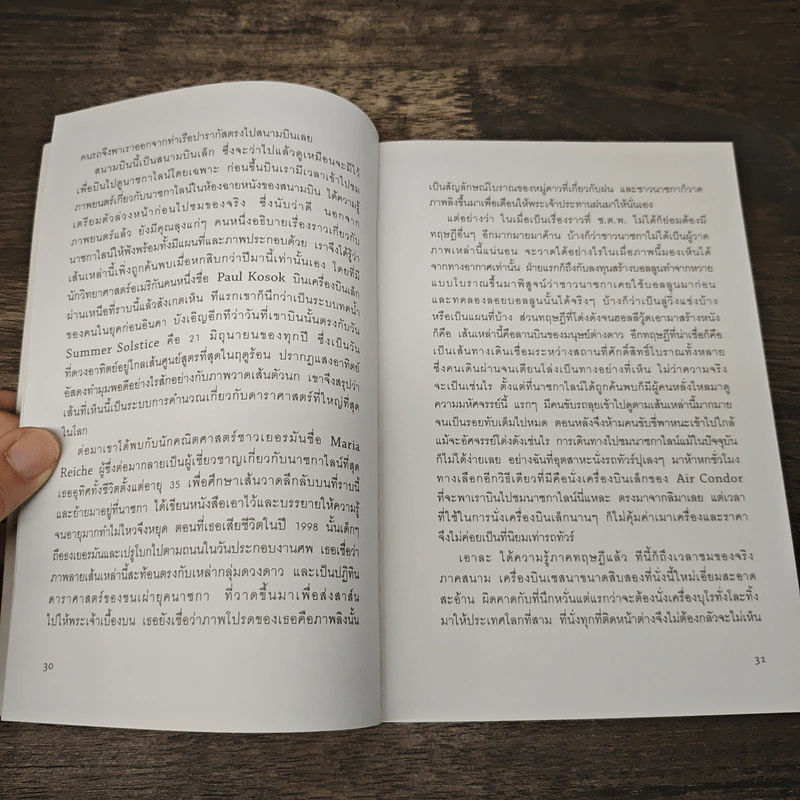 คนรถจึงพาเราออกจากท่าเรือปารากัสตรงไปสนามบินเลย
สนามบินนี้เป็นสนามบินเล็ก ซึ่งจะว่าไปแล้วดูเหมือนจะมีไว้
เพื่อบินไปดูนาซกาไลน์โดยเฉพาะ ก่อนขึ้นบินเรามีเวลาเข้าไปชม
ภาพยนตร์เกี่ยวกับนาซกาไลน์ในห้องฉายหนังของสนามบิน ได้ความรู้
เตรียมตัวล่วงหน้าก่อนไปชมของจริง ซึ่งนับว่าดี นอกจาก
ภาพยนตร์แล้ว ยังมีคุณลุงแก่ๆ คนหนึ่งอธิบายเรื่องราวเกี่ยวกับ
นาซกาไลน์ให้ฟังพร้อมทั้งมีแผนที่และภาพประกอบด้วย เราจึงได้รู้ว่า
เส้นเหล่านี้เพิ่งถูกค้นพบเมื่อหกสิบกว่าปีมานี้เท่านั้นเอง โดยที่มี
นักวิทยาศาสตร์อเมริกันคนหนึ่งชื่อ Paul Kosok บินเครื่องบินเล็ก
ผ่านเหนือที่ราบนี้แล้วสังเกตเห็น ทีแรกเขาก็นึกว่าเป็นระบบทดน้ำ
ของคนในยุคก่อนอินคา บังเอิญอีกทีว่าวันที่เขาบินนั้นตรงกับวัน
Summer Solstice คือ 21 มิถุนายนของทุกปี ซึ่งเป็นวัน
ที่ดวงอาทิตย์อยู่ไกลเส้นศูนย์สูตรที่สุดในฤดูร้อน ปรากฏแสงอาทิตย์
อัสดงทำมุมพอดีอย่างไรสักอย่างกับภาพวาดเส้นตัวนก เขาจึงสรุปว่า
เส้นที่เห็นนี้เป็นระบบการคำนวณเกี่ยวกับดาราศาสตร์ที่ใหญ่ที่สุด
ในโลก
ต่อมาเขาได้พบกับนักคณิตศาสตร์ชาวเยอรมันชื่อ Maria
Reiche ผู้ซึ่งต่อมากลายเป็นผู้เชี่ยวชาญเกี่ยวกับนาซกาไลน์ที่สุด
เธออุทิศทั้งชีวิตตั้งแต่อายุ 35 เพื่อศึกษาเส้นวาดลึกลับบนที่ราบนี้
และย้ายมาอยู่ที่นาซกา ได้เขียนหนังสือเอาไว้และบรรยายให้ความรู้
จนอายุมากทำไม่ไหวจึงหยุด ตอนที่เธอเสียชีวิตในปี 1998 นั้นเด็กๆ
ถือธงเยอรมันและเปรูโบกไปตามถนนในวันประกอบงานศพ เธอเชื่อว่า
ภาพลายเส้นเหล่านี้สะท้อนตรงกับเหล่ากลุ่มดวงดาว และเป็นปฏิทิน
ดาราศาสตร์ของชนเผ่ายุคนาซกา ที่วาดขึ้นมาเพื่อส่งสาส์น
ไปให้พระเจ้าเบื้องบน เธอยังเชื่อว่าภาพโปรดของเธอคือภาพลิงนั้น
30
เป็นสัญลักษณ์โบราณของหมู่ดาวที่เกี่ยวกับฝน และชาวนาซกาก็วาด
ภาพลิงขึ้นมาเพื่อเตือนให้พระเจ้าประทานฝนมาให้นั่นเอง
แต่อย่างว่า ในเมื่อเป็นเรื่องราวที่ ช.ต.พ. ไม่ได้ก็ย่อมต้องมี
ทฤษฎีอื่นๆ อีกมากมายมาค้าน บ้างก็ว่าชาวนาซกาไม่ได้เป็นผู้วาด
ภาพเหล่านี้แน่นอน จะวาดได้อย่างไรในเมื่อภาพนี้มองเห็นได้
จากทางอากาศเท่านั้น ฝ่ายแรกก็ถึงกับลงทุนสร้างบอลลูนทำจากหวาย
แบบโบราณขึ้นมาพิสูจน์ว่าชาวนาซกาเคยใช้บอลลูนมาก่อน
และทดลองลอยบอลลูนนั้นได้จริงๆ บ้างก็ว่าเป็นลู่วิ่งแข่งบ้าง
หรือเป็นแผนที่บ้าง ส่วนทฤษฎีที่โด่งดังจนฮอลลีวู้ดเอามาสร้างหนัง
ก็คือ เส้นเหล่านี้คือลานบินของมนุษย์ต่างดาว อีกทฤษฎีที่น่าเชื่อก็คือ
เป็นเส้นทางเดินเชื่อมระหว่างสถานที่ศักดิ์สิทธิ์โบราณทั้งหลาย
ซึ่งคนเดินผ่านจนเตียนโล่งเป็นทางอย่างที่เห็น ไม่ว่าความจริง
จะเป็นเช่นไร ตั้งแต่ที่นาซกาไลน์ได้ถูกค้นพบก็มีผู้คนหลั่งไหลมาดู
ความมหัศจรรย์นี้ แรกๆ มีคนขับรถลุยเข้าไปดูตามเส้นเหล่านี้มากมาย
จนเป็นรอยทับเต็มไปหมด ตอนหลังจึงห้ามคนขับขี่พาหนะเข้าไปใกล้
แม้จะอัศจรรย์โด่งดังเช่นไร การเดินทางไปชมนาซกาไลน์แม้ในปัจจุบัน
ก็ไม่ได้ง่ายเลย อย่างฉันที่อุตส่าหะนั่งรถทัวร์ปุเลงๆ มาห้าหกชั่วโมง
ทางเลือกอีกวิธีเดียวที่มีคือนั่งเครื่องบินเล็กของ Air Condor
ที่จะพาเราบินไปชมนาซกาไลน์นี่แหละ ตรงมาจากลิมาเลย แต่เวลา
ที่ใช้ในการนั่งเครื่องบินเล็กนานๆ ก็ไม่คุ้มค่าเมาเครื่องและราคา
จึงไม่ค่อยเป็นที่นิยมเท่ารถทัวร์
เอาละ ได้ความรู้ภาคทฤษฎีแล้ว ทีนี้ก็ถึงเวลาชมของจริง
ภาคสนาม เครื่องบินเซสนาขนาดสิบสองที่นั่งนี้ใหม่เอี่ยมสะอาด
สะอ้าน ผิดคาดกับที่นึกหวั่นแต่แรกว่าจะต้องนั่งเครื่องบุโรทั่งโละทิ้ง
มาให้ประเทศโลกที่สาม ที่นั่งทุกที่ติดหน้าต่างจึงไม่ต้องกลัวจะไม่เห็น
31